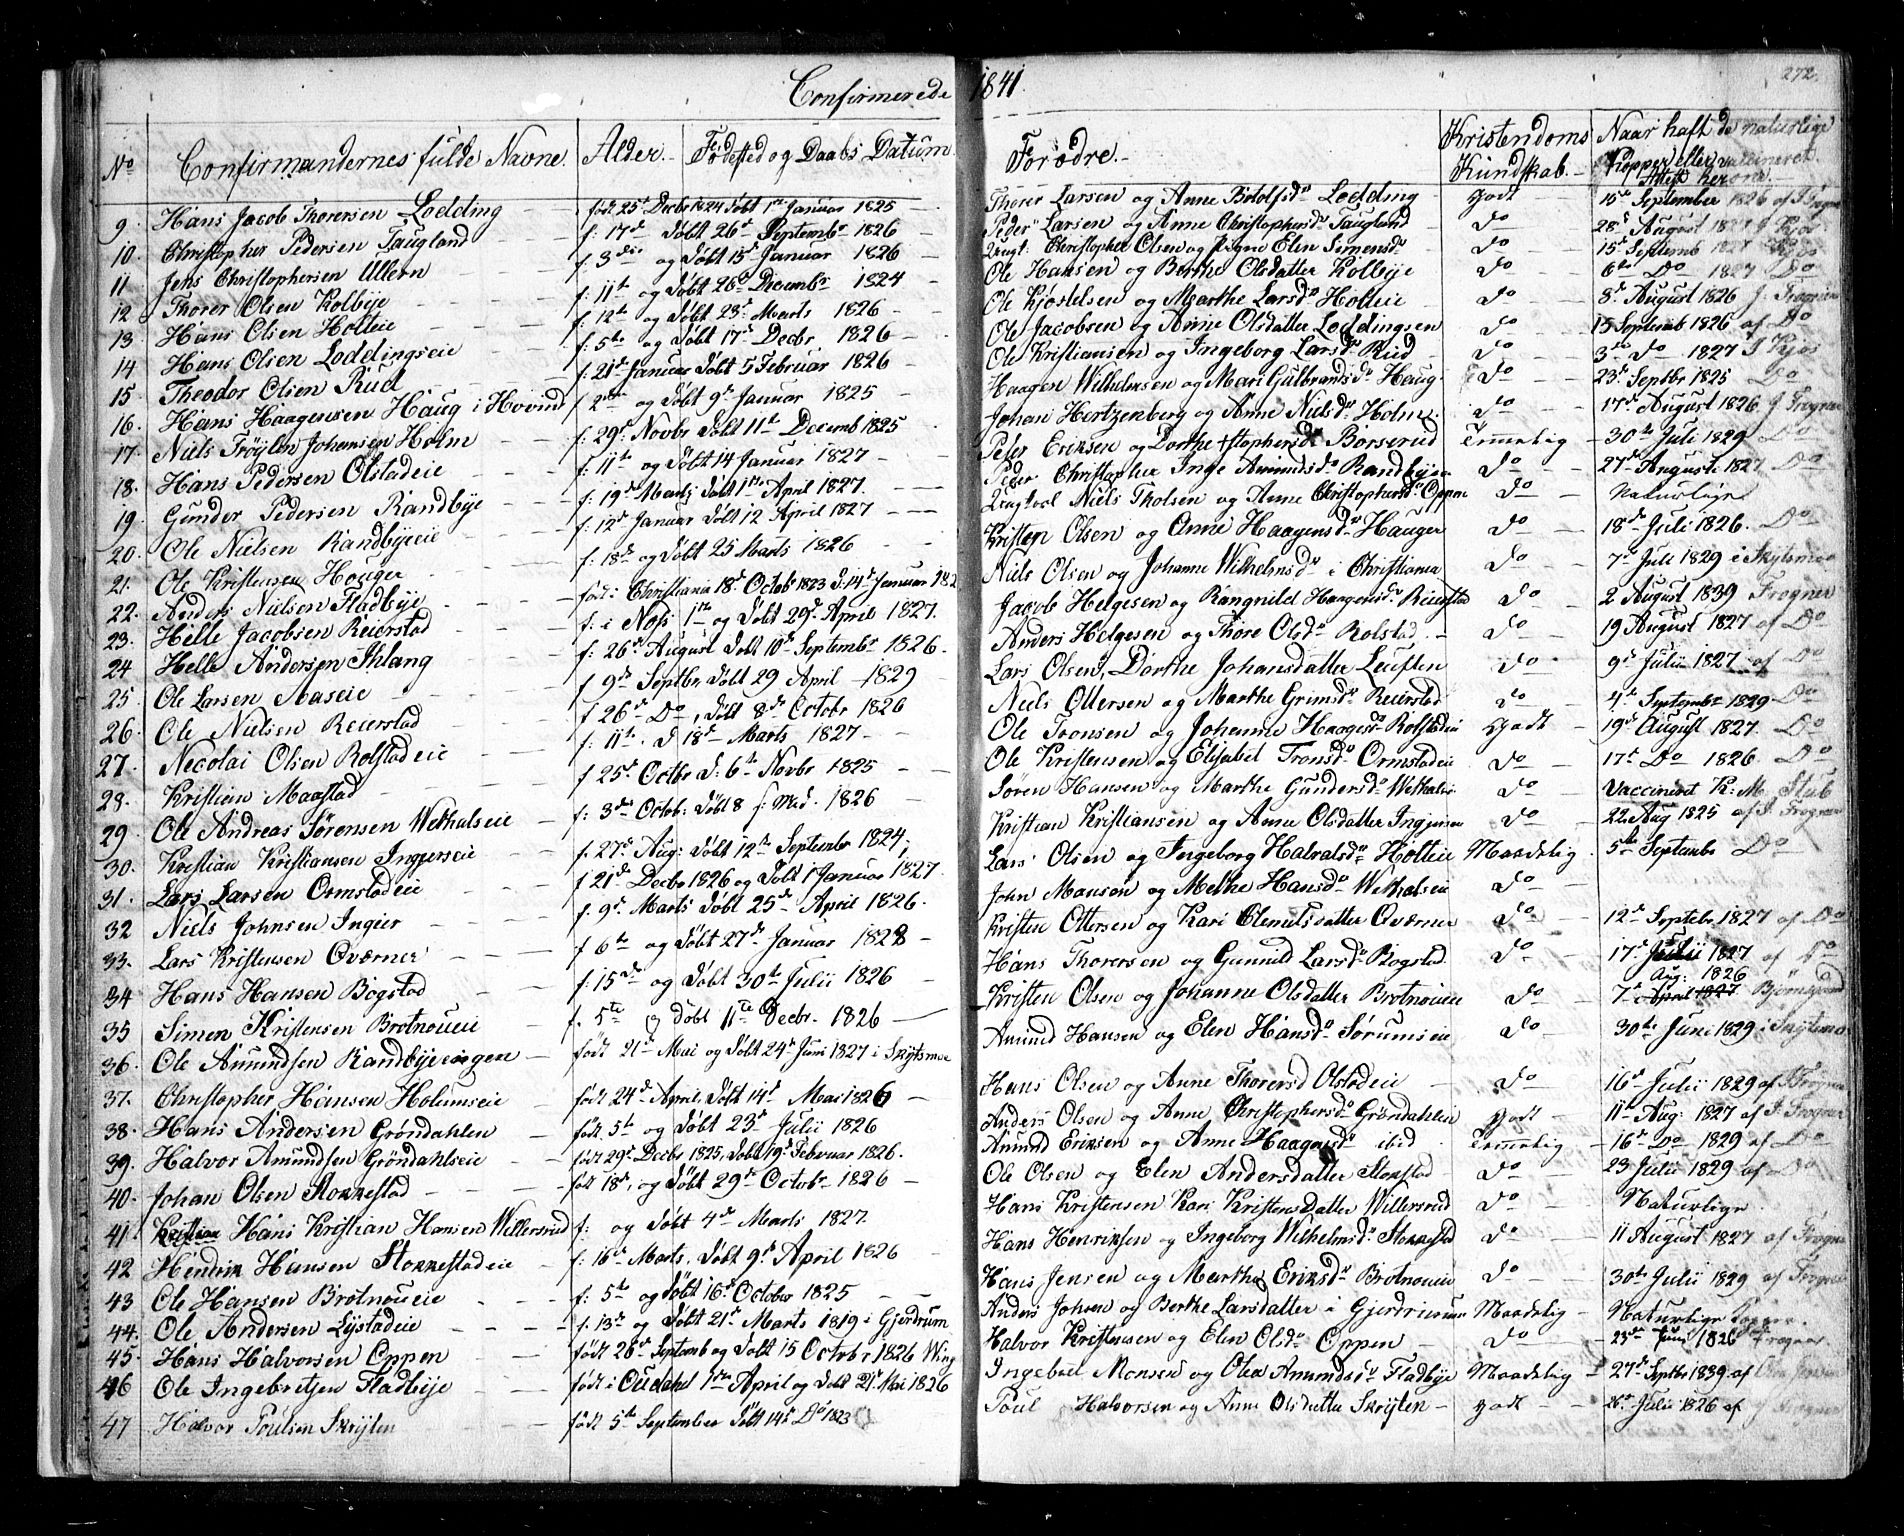 Confirmerede 1841. 272.
No Confirmandernes fulde Navne. Alder. Fødested og Daabs Datum. Forældre. Kristendoms Kundskab. Naar haft de naturlige Kopper eller vaccineret.
9. Hans Jacob Thorersen Lodding født 25d Decbr 1824 døbt 1ste Januar 1825 Thorer Larsen og Anne Botolfsdr Lodding godt 15d September 1826 af J Frogner
10. Christopher Pedersen Taugland f: 17d døbt 26d Septembr 1826 Peder Larsen og Anne Christophersdr Taugland do 28d August
11 Jens Christophersen Ullern f. 3die og døbt 15d Januar 1826 Ungk. Christopher Olsen og Pigen Elen Simensdr do 15d Septemb 1827
12 Thorer Olsen Kolbye f: 11te og døbt 26d Decembr 1824 Ole Hansen og Berthe Olsdatter Kolbye do 6te Do 1827 Do
13. Hans Olsen Holteie f: 12te og døbt 23d Marts 1826 Ole Kjostelsen og Marthe Larsdr Holteie do 8d August 1826 J. Frogner
14 Hans Olsen Loddingseie f: 5te og døbt 17d Decbr. 1826 Ole Jacobsen og Anne Olsdatter Loddingsen do 15 Septemb 1826 af Do
15. Theodor Olsen Rud f: 21d Januar døbt 5 Februar 1826 Ole Kristiansen og Ingeborg Larsdr Rud do 3die do 1827 J Kjos
16. Hans Haagensen Haug i Hovind f 2den og døbt 9d Januar 1825 Haagen Wilhelmsen og Mari Gulbrandsdr Haug do 23d Septbr 1825 Do
17. Niels Frøylen Johansen Holm f: 29d Novbr døbt 11te Decemb 1825 Johan Hertzenberg og Anne Nielsdr Holm. do 17d August 1826 J Frogner
18. Hans Pedersen Olstadeie f: 11te og døbt 14 Januar 1827 Peter Eriksen og Dorthe +stophersdr Børserud Temmelig 30te Juli 1829 Do
19. Gunder Pedersen Randbye f: 19d Marts døbt 1ste April 1827. Peder Christopher Inge Amundsdr Randbye do 27d August 1827 Do
20. Ole Nielsen Randbyeeie f: 12d Januar døbt 12 April 1827 Ungkarl Niels Tholsen og Anne Christophersdr Oppen do Naturlige
21. Ole Kristensen Houger f: 18d og døbt 25 Marts 1826 Kristen Olsen og Anne Haagensdr Hauger do 18d Juli 1826. Do
22. Anders Nielsen Fladbye født i Christiania 18d Octobr 1823 d: 14d Januar 182 Niels Olsen og Johanne Wilhelmsdr i Christiania do 7d Juli 1829 i Skytsmoe
23. Helle Jacobsen Reierstad f: i Næs 1ste og døbt 29d April 1827. Jacob Helgesen og Rangnild Haagensdr Reierstad do 2 August 1839 Frogner
24 Helle Andersen Ihlang f: 26d August døbt 10d Septembr 1826. Anders Helgesen og Thore Olsdr Rolstad do 19 August 1827 af Do
25 Ole Larsen Aaseie f 9d Septbr døbt 29 April 1829 Lars Olsen, Dorthe Johansdatter Leuften do 9d Julii 1827 af Do
26. Ole Nielsen Reierstad f 26d Do, døbt 8d Octobr 1826 Niels Ottersen og Marthe Grimsdr Reierstad do 4d Septembr 1829 Do
27. Necolai Olsen Rolstadeie f: 11te. d 18d Marts 1827 Ole Tronsen og Johanne Haagesdr Rolstadeie godt 19d August 1827. Do
28. Kristian Maastad f 25d Octbr d: 6te Novbr 1825 Ole Kristensen og Elisabet Tronsdr Ormstadeie do 17d Do 1826 Do
29 Ole Andreas Sørensen Wethalseie f: 3die Octobr: døbt 8 1826 Søren Hansen og Marthe Gundersdr Wethalseie do Vaccineret K: M. Stub
30. Kristian Kristiansen Ingierseie f. 27d Aug: døbt 12te Septembr 1824, Kristian Kristiansen og Anne Olsdatter Ingierseie do 22 Aug 1825 af J. Frogner
31. Lars Larsen Ormstadeie f 21d Decbr 1826 og døbt 1 Januar 1827. Lars Olsen og Ingeborg Halvalsdr Holteie Maadelig 5te Septembr Do
32 Niels Johnsen Ingier f. 9d Marts døbt 25d April 1826. John Mansen og Methe Hansdr Wethalseie do
33. Lars Kristensen Oværner f 6te og døbt 27d Januar 1828 Kristen Ottersen og Kari Clemetsdatter Oværner do 12te Septebr 1827 af Do
34 Hans Hansen Bogstad f: 15de og døbt 30te Julii 1826 Hans Thorersen og Gunnild Larsdr Bogstad do 17d Julii 1827 af Do
35 Simen Kristensen Brotnoueie f. 5te og døbt 11te Decbr. 1826 Kristen Olsen og Johanne Olsdatter Brotnoueie do 7d Aug: 1826 April 1827
36. Ole Amundsen Randbyeengen født 21d Mai og døbt 24d Juni 1827 i Skytsmoe Amund Hansen og Elen Hansdr Sørumseie do 30te Juni 1829 i Skytsmo
37. Christopher Hansen Holumseie født 24d April, døbt 14d Mai 1826 Hans Olsen og Anne Thorersd Olstadeie do 16d Julii 1829 af J Frogner
38. Hans Andersen Grøndahlen født 5te og døbt 23d Julii 1826 Anders Olsen og Anne Christophersdr Grøndahlen godt 11te Aug: 1827 af J. Frogner
39. Halvor Amundsen Gröndahlseie født 29d Decbr 1825, døbt 19d Februar 1826. Amund Eriksen og Anne Haagensdr ibid Temmelig 16d Do 1829 af Do
40. Johan Olsen Stokkestad født 18d, og døbt 29d Octobr 1826 Ole Olsen og Elen Andersdatter Stokstad do 23 Julii 1829 af Do
41. Kristian Hans Kristian Hansen Willersrud f: og døbt 4de Marts 1827 Hans Kristensen Kari Kristens Datter Willersrud do Naturlige
42 Hendrik Hansen Stokkestadeie f: 16d Marts, døbt 9d April 1826 Hans Henriksen og Ingeborg Wilhelmsdr Stokkestad do 11 August 1827 af Frogner
43 Ole Hansen Brotnoueie f. 5te og døbt 16d October 1825 Hans Jensen og Marthe Eriksdr Brotnoueie do 30te Julii 1829 af Frogner
44. Ole Andersen Lystadeie f. 13d og døbt 21d Marts 1819 i Gjerdrum Anders Johsen og Berthe Larsdatter i Gjerdrum Maadelig Naturlige Kopper.
45 Hans Halvorsen Oppen født 26d Septemb og døbt 15 Octobr 1826 Halvor Kristensen og Elen Olsdr Oppen do 23d Juni 1826 Frogner
46 Ole Ingebretsen Fladbye født i Oudahl 1ste April og døbt 21d Mai 1826 Ingebret Monsen og Olea Amundsdr Fladbye Maadelig 27d Septbr 1839 af
47 Halvor Poulsen Skrysten født 5te September døbt 14d Do 1823 Poul Halvorsen og Anne Olsdatter Skrysten godt Julii 1826 af J Frogner